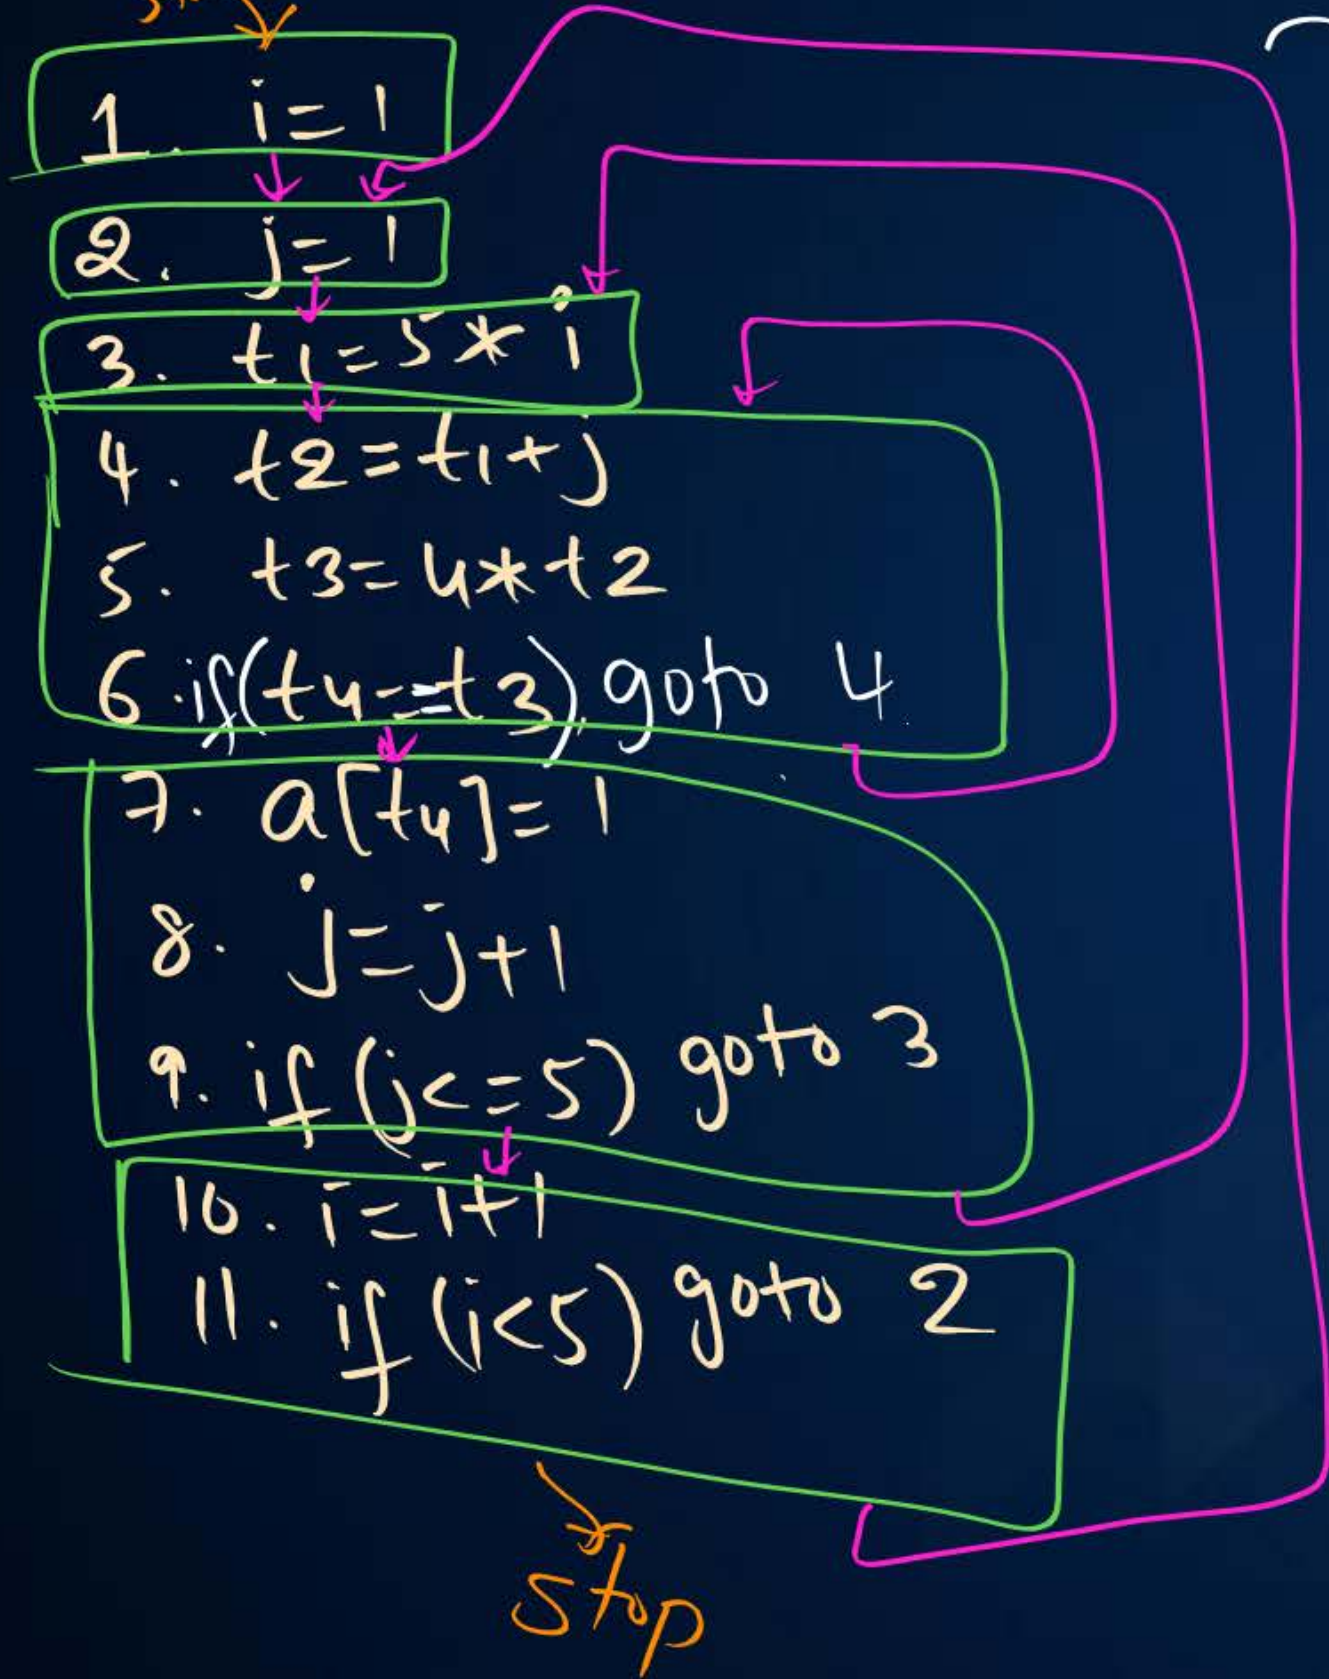 1. i = 1
2. j = 1
3. t1 = 5 * i
4. t2 = t1 + j
5. t3 = 4 * t2
6. if(t4 == t3) goto 4
7. a[t4] = 1
8. j = j + 1
9. if (j <= 5) goto 3
10. i = i + 1
11. if (i < 5) goto 2
stop